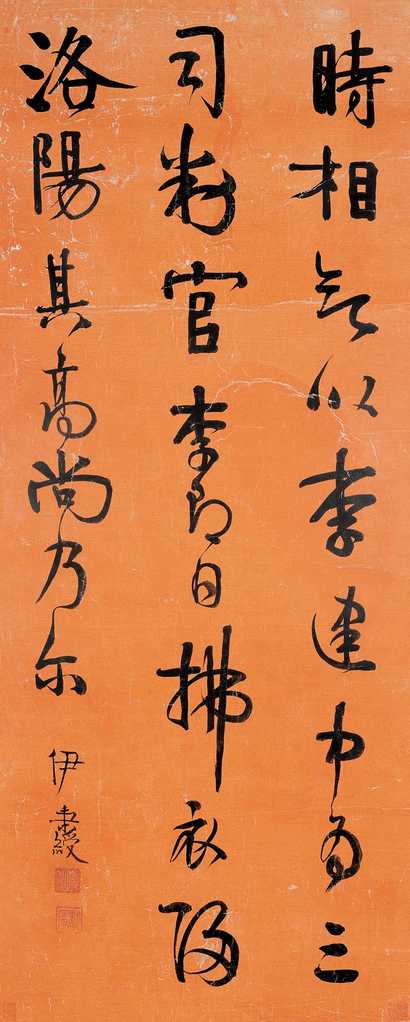 時相以李建中為三
司判官李即日拂衣歸
洛陽其高尚乃尔
伊秉綬